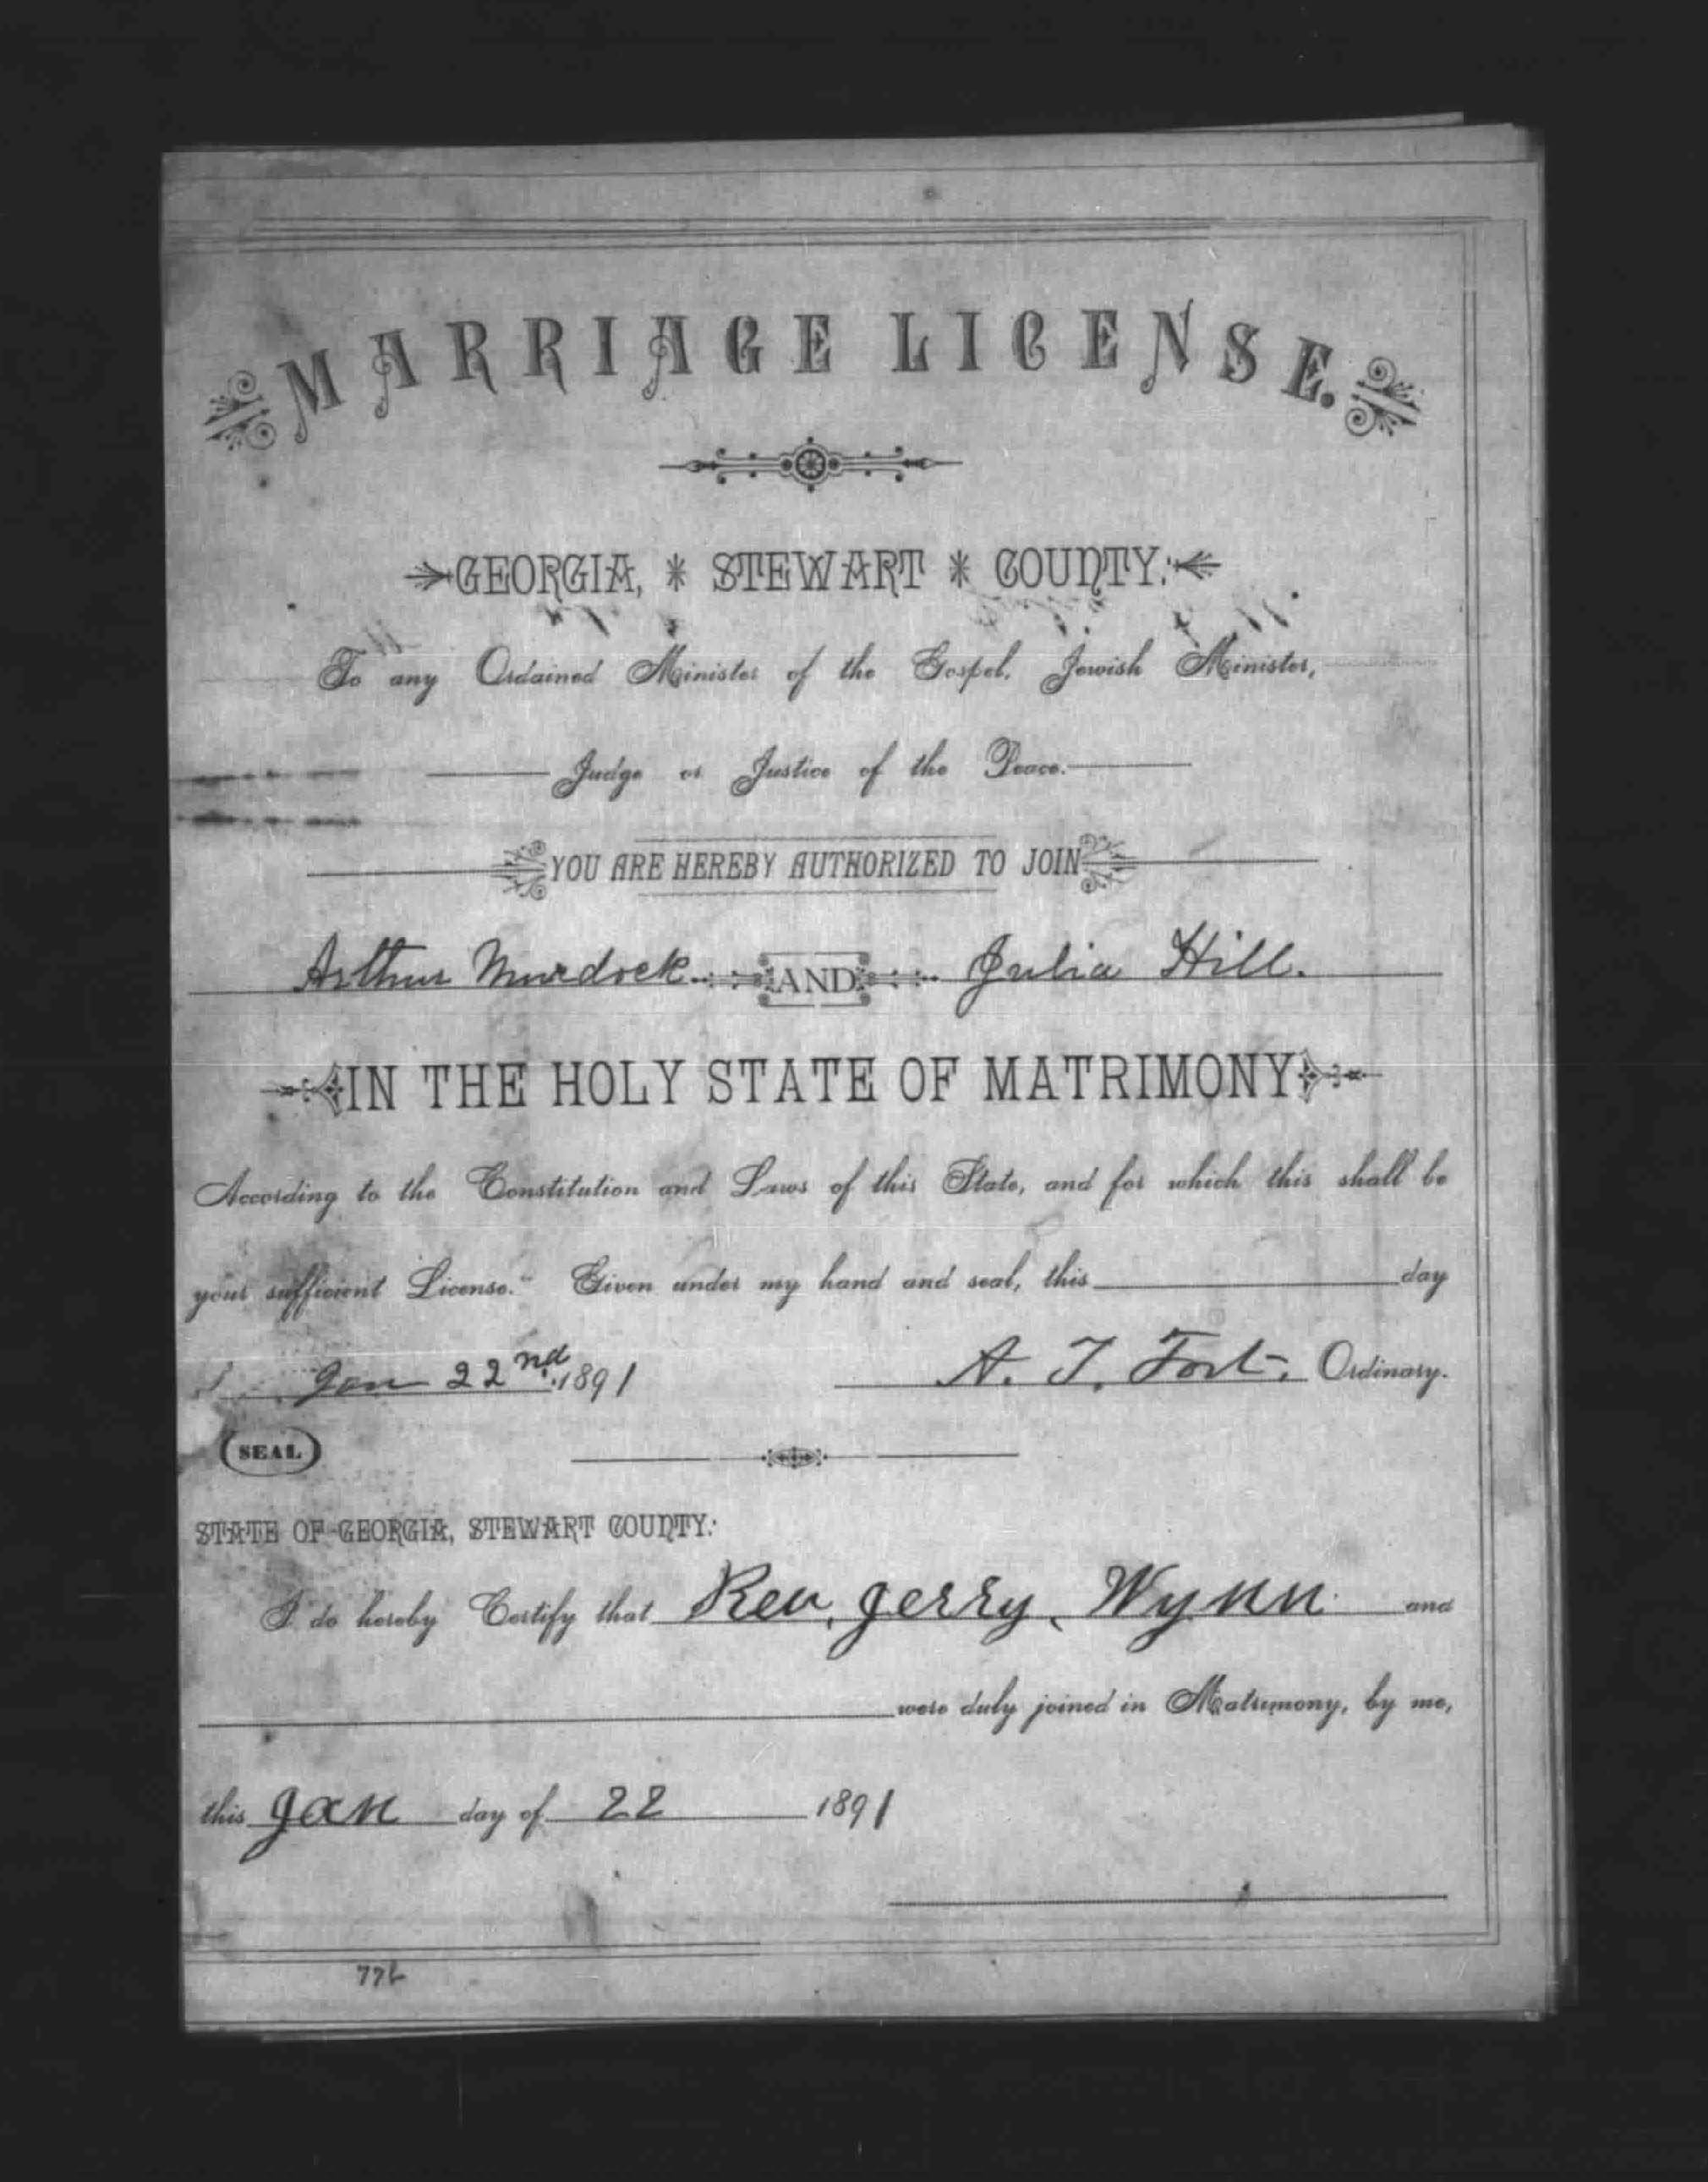 MARRIAGE LICENSE.
GEORGIA, * STEWART * COUNTY:
To any Ordained Minister of the Gospel, Jewish Minister,
Judge or Justice of the Peace.
YOU ARE HEREBY AUTHORIZED TO JOIN
Arthur Murdock AND Julia Hill.
IN THE HOLY STATE OF MATRIMONY
According to the Constitution and Laws of this State, and for which this shall be
your sufficient License. Given under my hand and seal, this day
Jan 22nd 1891 A. T. Fort. Ordinary.
(SEAL)
STATE OF GEORGIA, STEWART COUNTY:
I do hereby Certify that Rev, Jerry, Wynn and
were duly joined in Matrimony, by me,
this Jan day of 22 1891